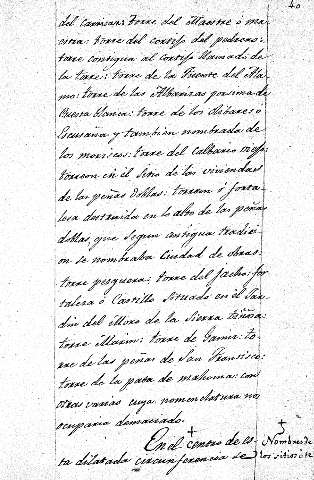 40
del camisan: torre del Maestre ó ma
estra: torre del cortijo del pedroso:
torre contigua al cortijo llamado de
la torre: torre de la fuente del Ala
mo: torre de las Albarizas por sima de
Buena blanca: torre de los Aljbares ó
Escusaña y tambien nombrada de
los moriscos: torre del calbario
torreon en el Sitio de las viviendas
de las peñas doblas: torreon ó forta
lesa destruida en lo alto de las peñas
doblas, que segun antigua tradici
on se nombraba Ciudad de obras:
torre pesquera: torre del facho: for
talesa ó Castillo Situado en el Jar
din del Moro de la Sierra
torre Marim: torre de Gamir: to
rre de las peñas de San Fransisco:
torre de la pata de mahoma: con
otras varias cuya nomenclatura no
ocuparia demaciado.
En el centro de es
ta dilatada circunferencia se
Nombres de
los sitios de